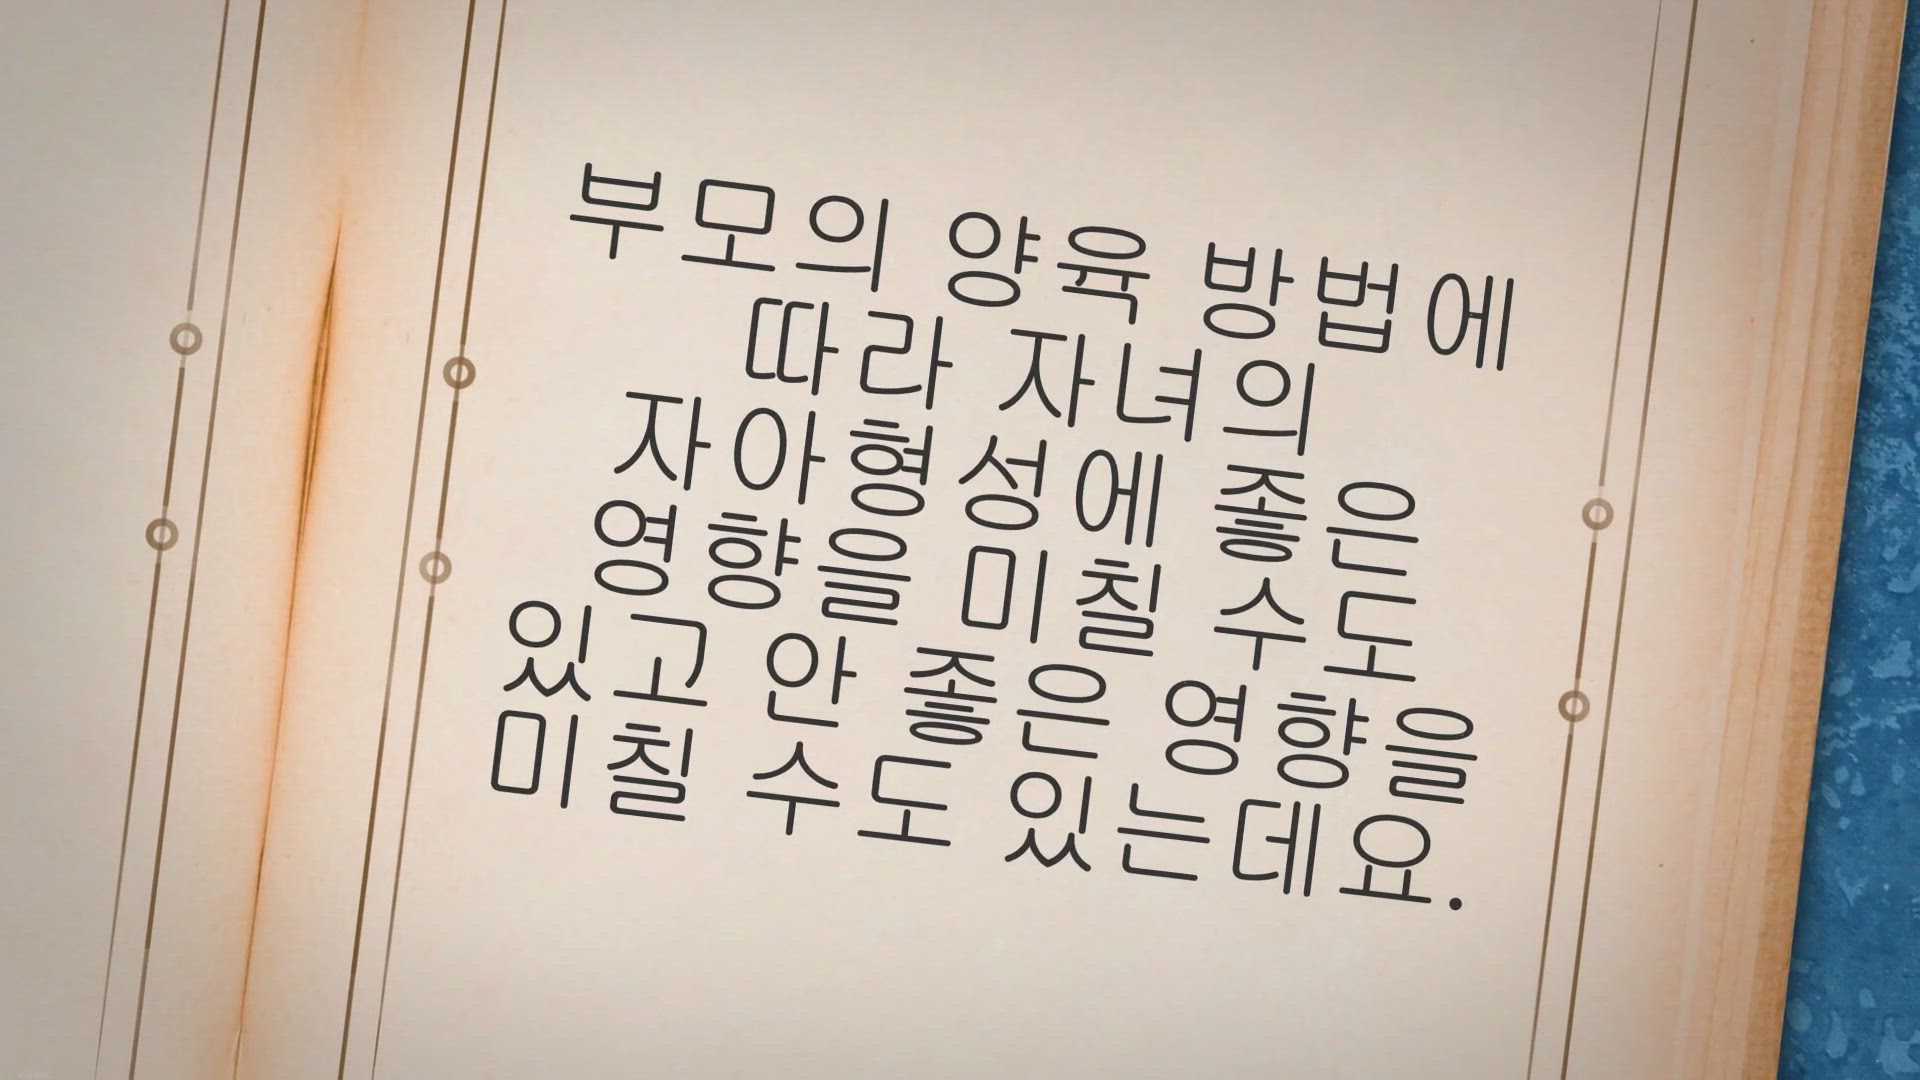 부모의 양육 방법에
따라 자녀의
자아형성에 좋은
영향을 미칠 수도
있고 안 좋은 영향을
미칠 수도 있는데요.